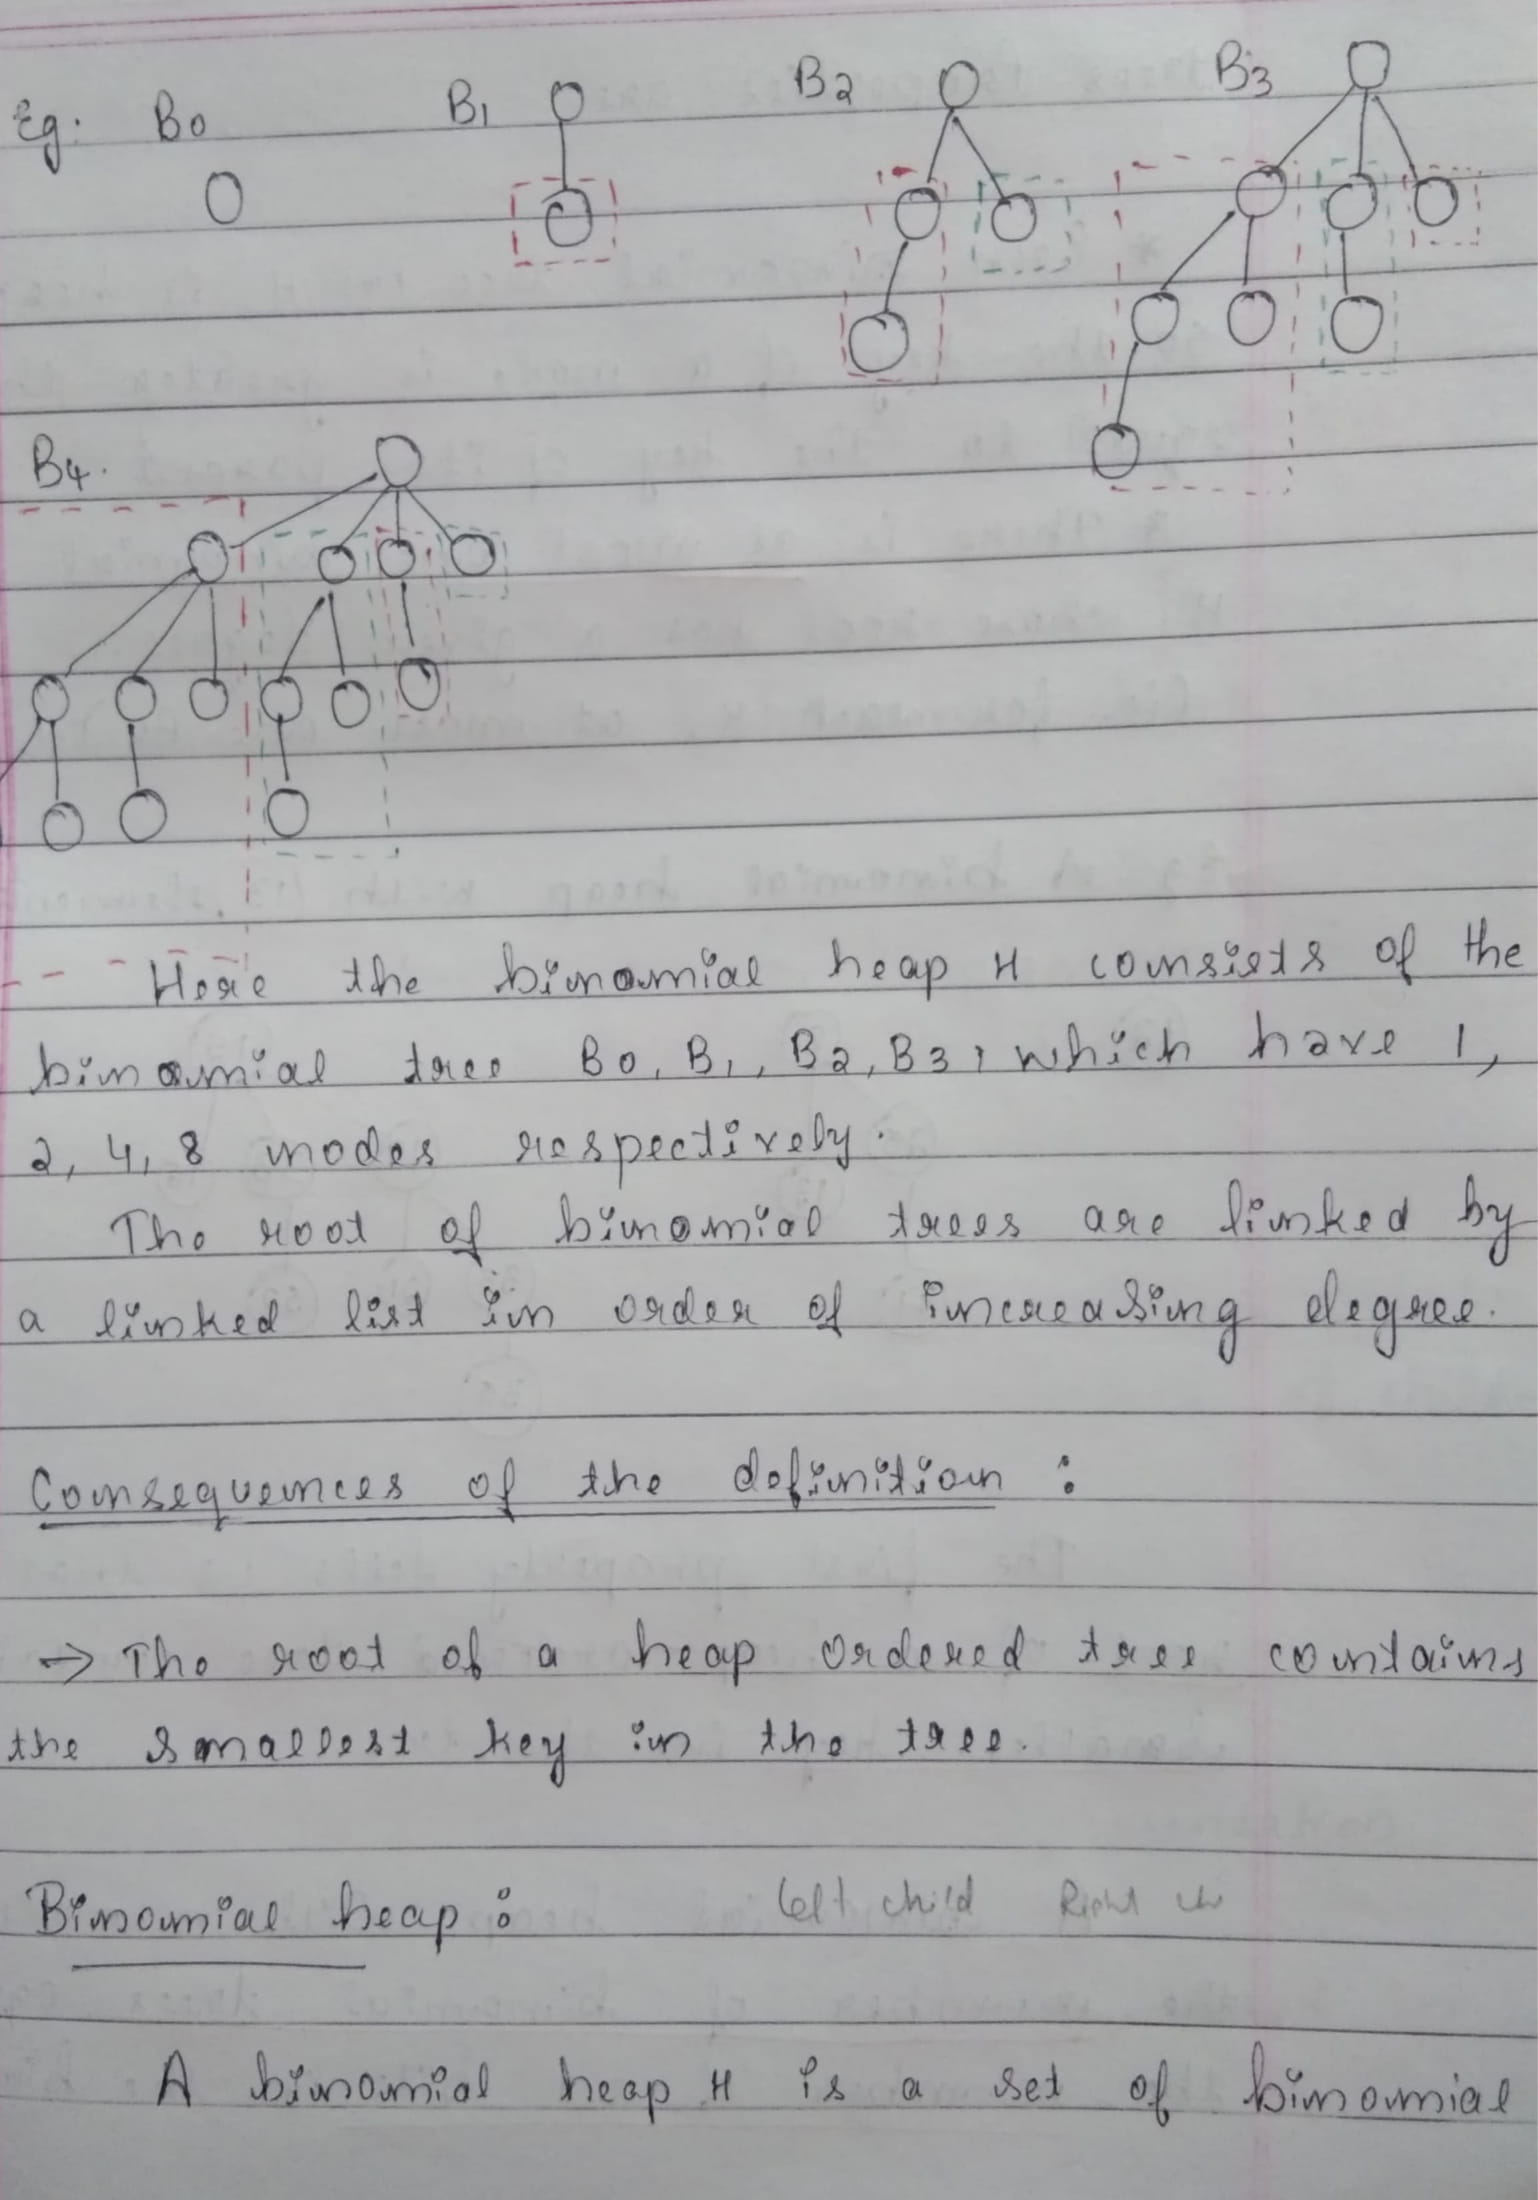 Eg: B0 B1 B2 B3
B4.
Here the binomial heap H consists of the
binomial tree B0, B1, B2, B3, which have 1,
2, 4, 8 nodes respectively.
The root of binomial trees are linked by
a linked list in order of increasing degree.
Consequences of the definition :
→ The root of a heap ordered tree contains
the smallest key in the tree.
Binomial heap : left child Right
A binomial heap H is a set of binomial